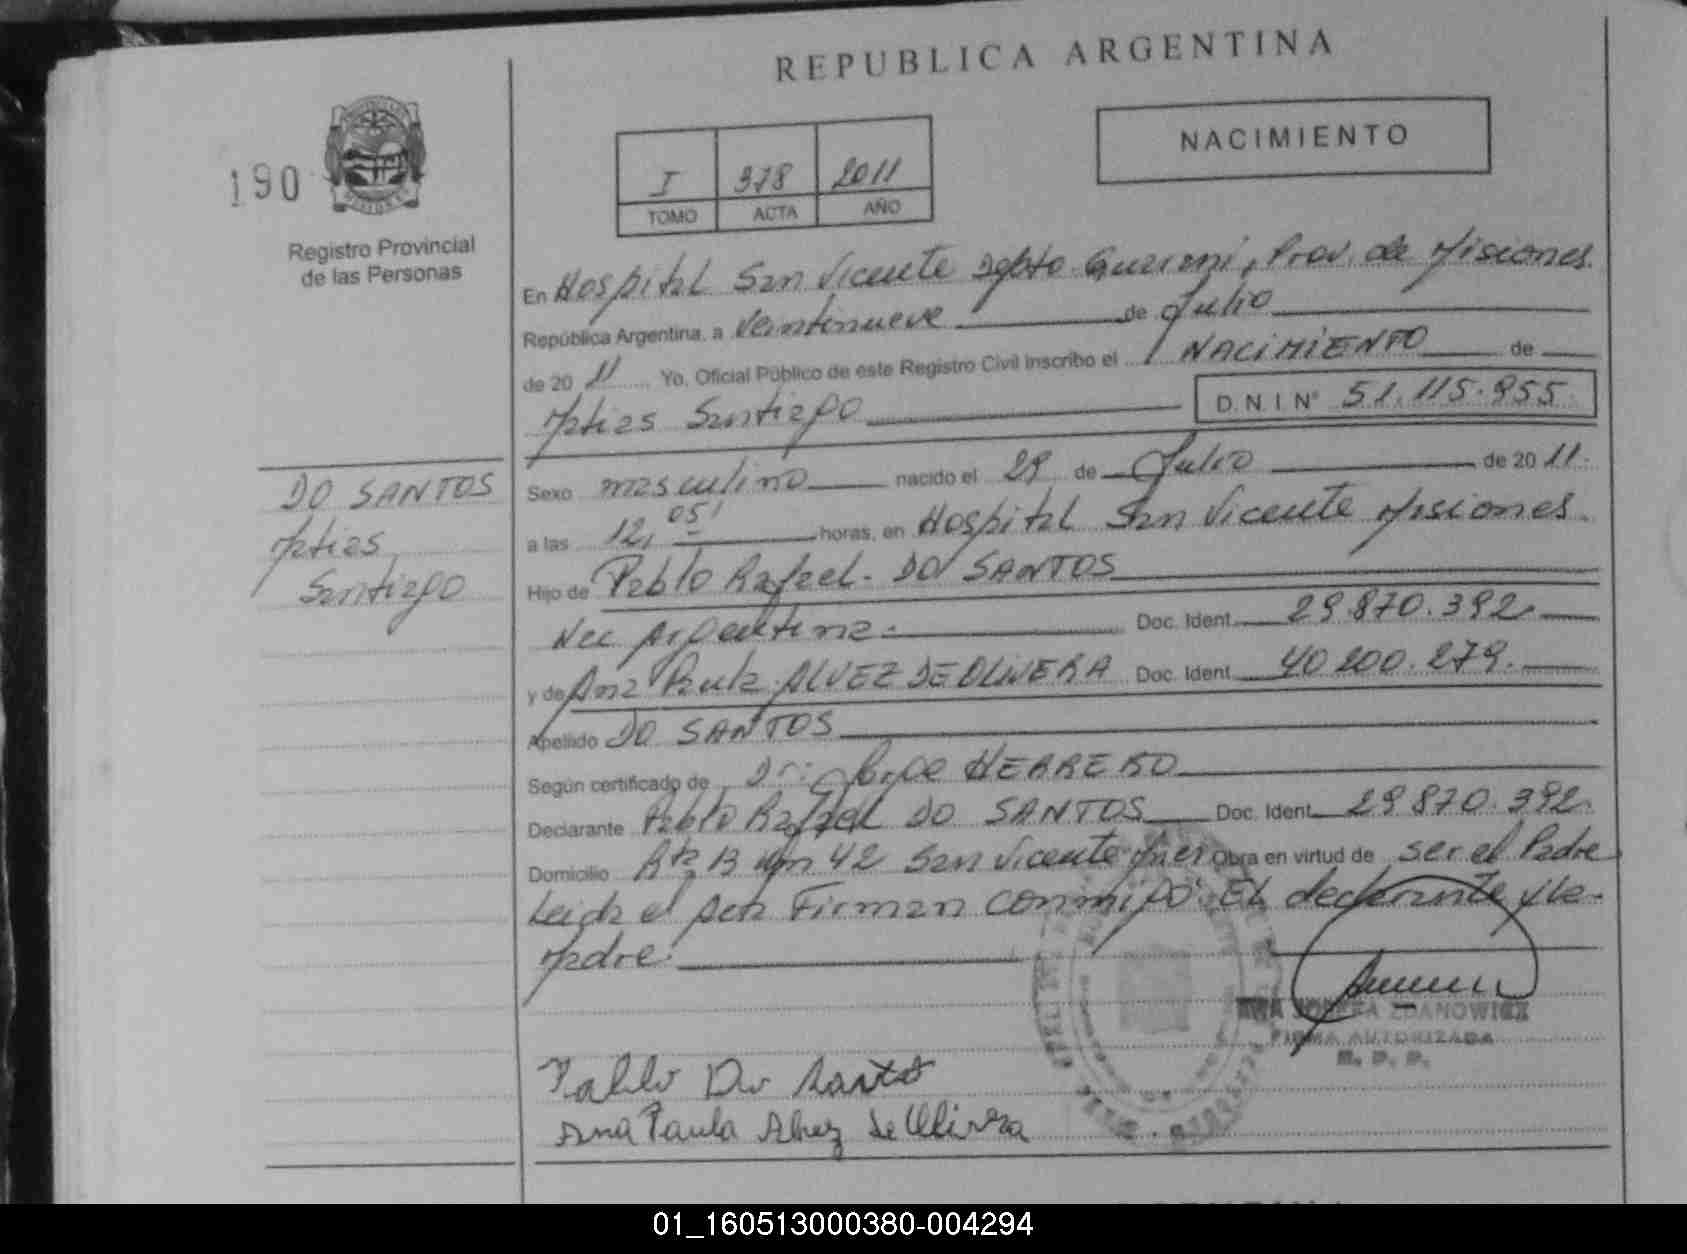 REPUBLICA ARGENTINA
190
Registro Provincial
de las Personas
I 378 2011
TOMO ACTA AÑO
NACIMIENTO
En Hospital San Vicente Dpto Guarani, Prov. de Misiones
República Argentina, a Veintinueve de Julio
de 20 11 Yo, Oficial Público de este Registro Civil Inscribo el NACIMIENTO de
Matias Santiago D. N. I N° 51.115.955
DO SANTOS
Matias
Santiago
Sexo masculino nacido el 29 de Julio de 20 11.
a las 12,05' horas, en Hospital San Vicente Misiones.
Hijo de Pablo Rafael. DO SANTOS
Nac Argentina. Doc. Ident. 29.870.392.
y de Ana Paula ALVEZ DE OLIVERA Doc. Ident. 40 200.279.
Apellido DO SANTOS
Según certificado de Dr: Jorge HERRERO
Declarante Pablo Rafael DO SANTOS Doc. Ident. 29 870.392.
Domicilio Rta 13 Km 42 San Vicente Mnes Obra en virtud de ser el Padre
Leida el Acta Firman conmigo: EL declarante y la
Madre.
JOSEFA ZDANOWICZ
FIRMA AUTORIZADA
R. P. P.
Pablo Do Santo
Ana Paula Alvez de Olivera
01_160513000380-004294